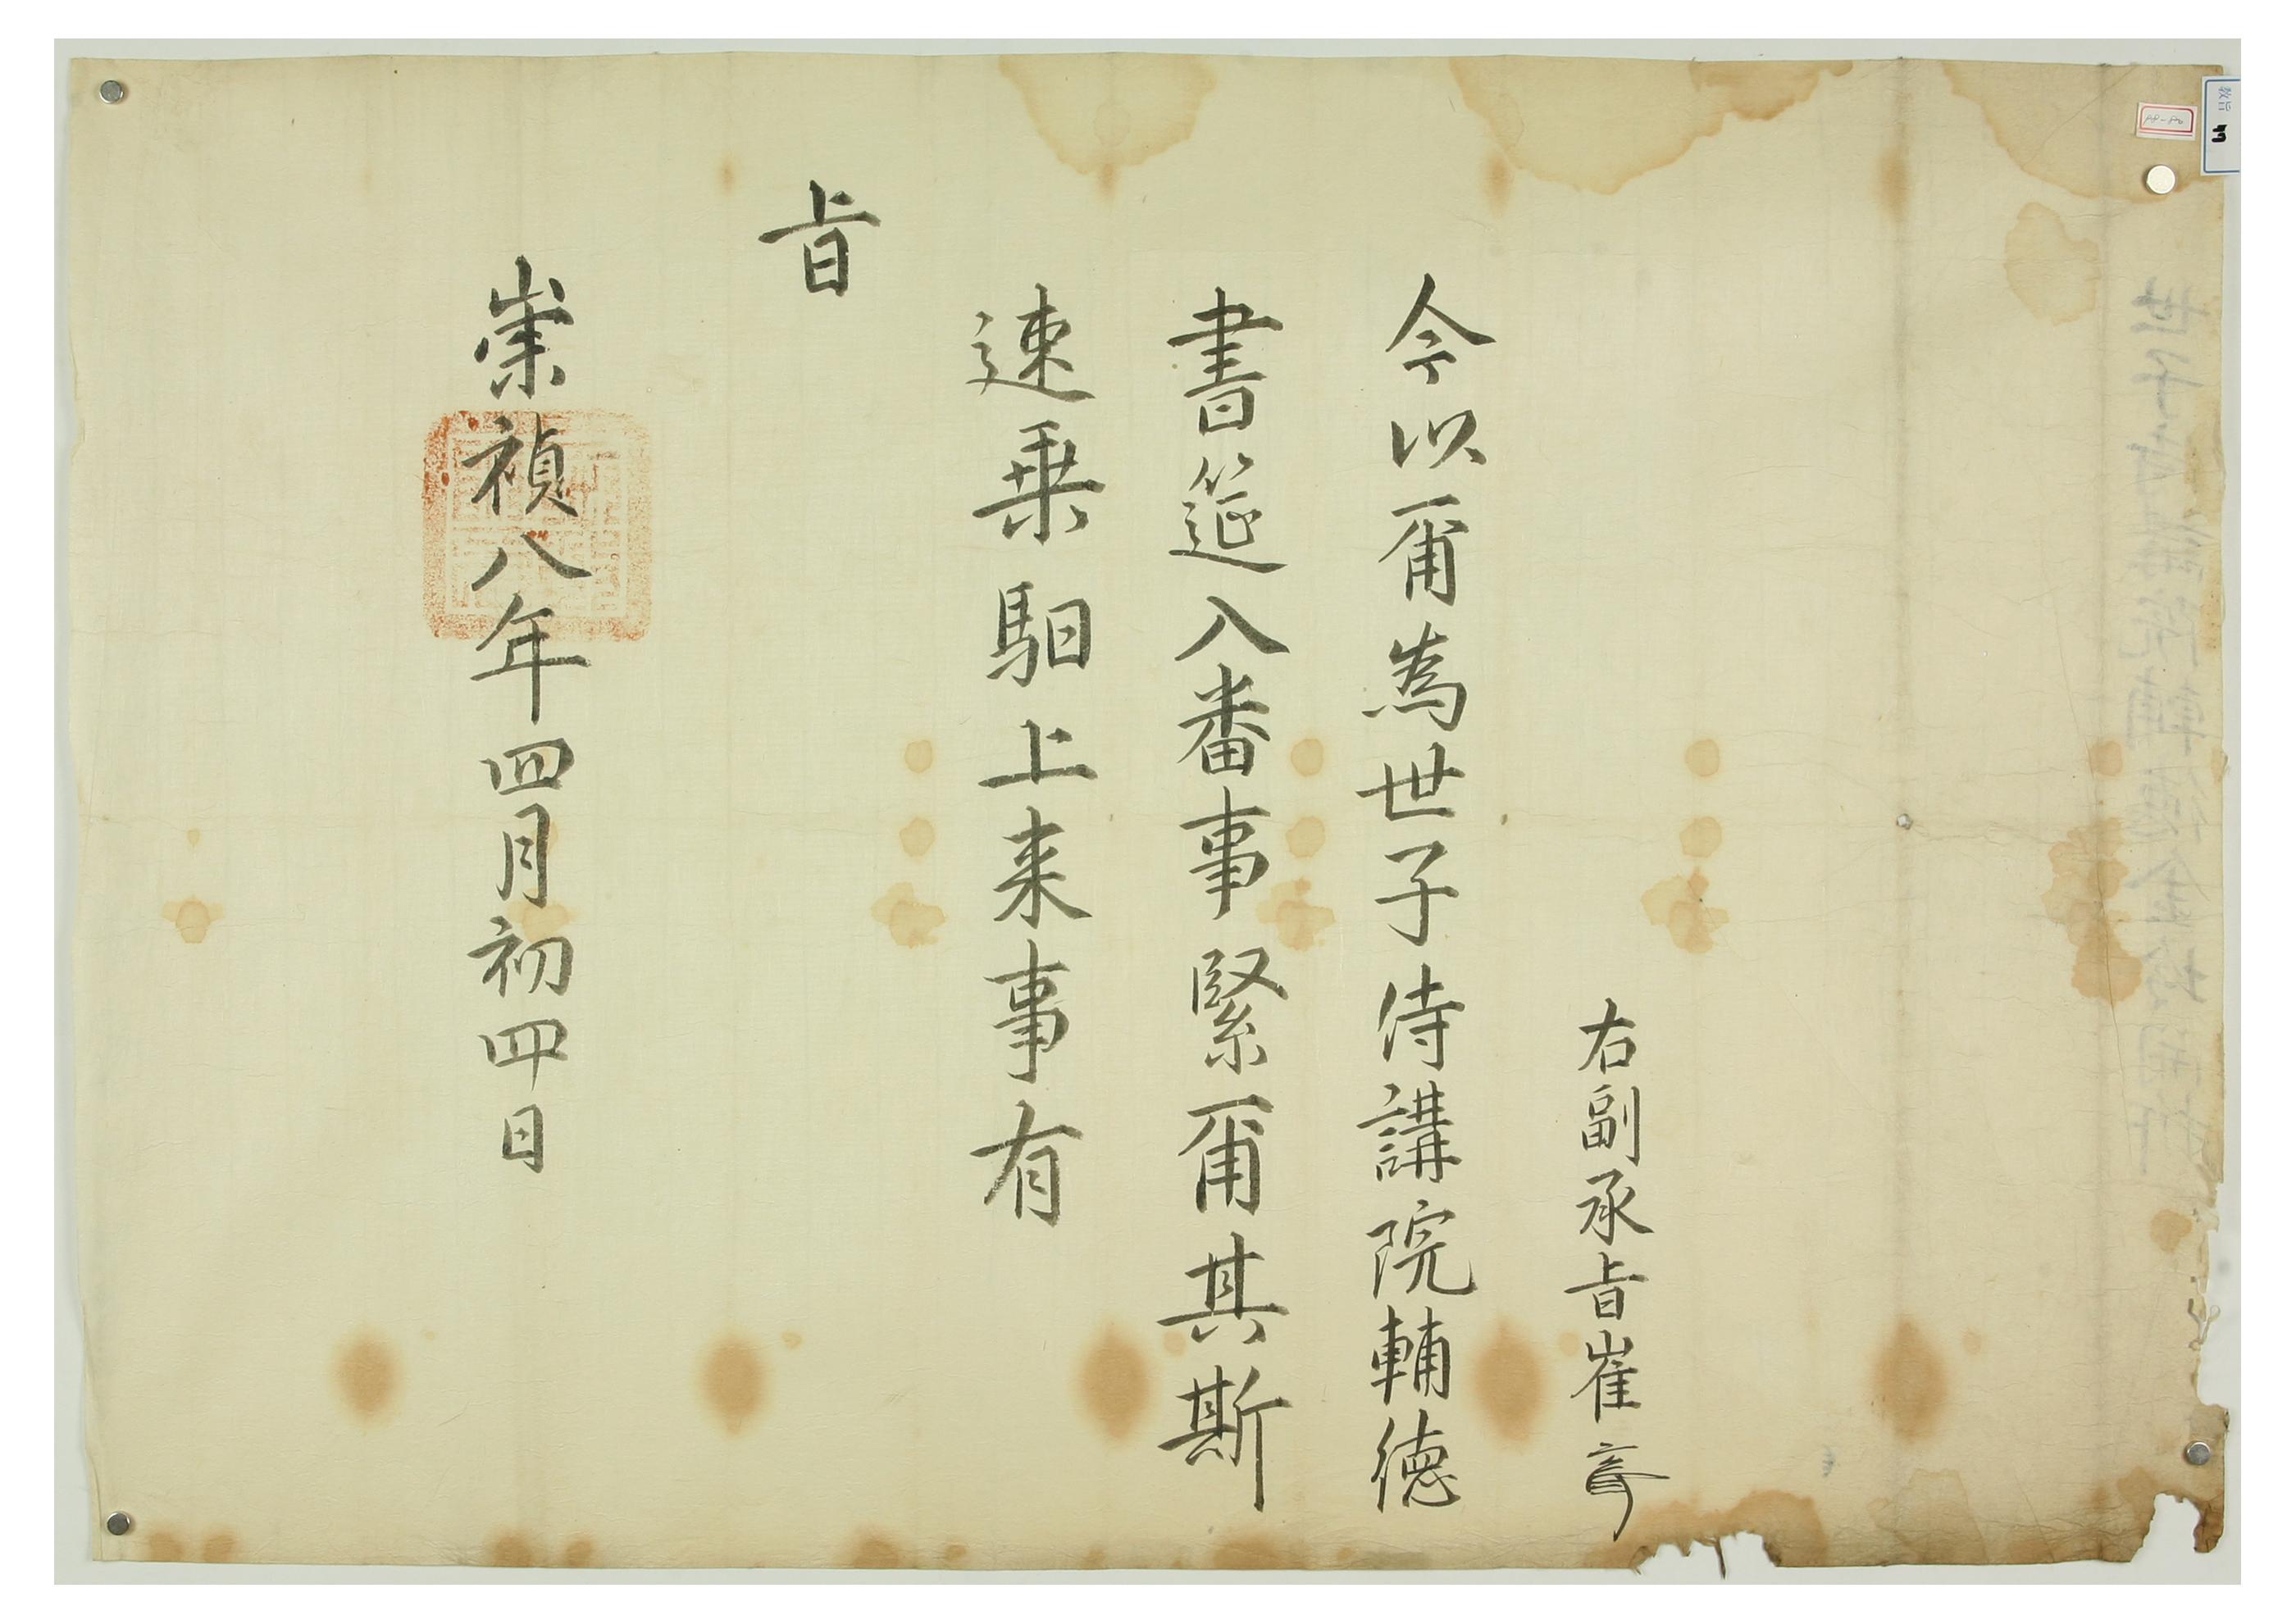 右副承旨崔
今以爾為世子侍講院輔德
書筵入番事緊爾其斯
速乗馹上来事有
旨
崇禎八年四月初四日
教旨
3